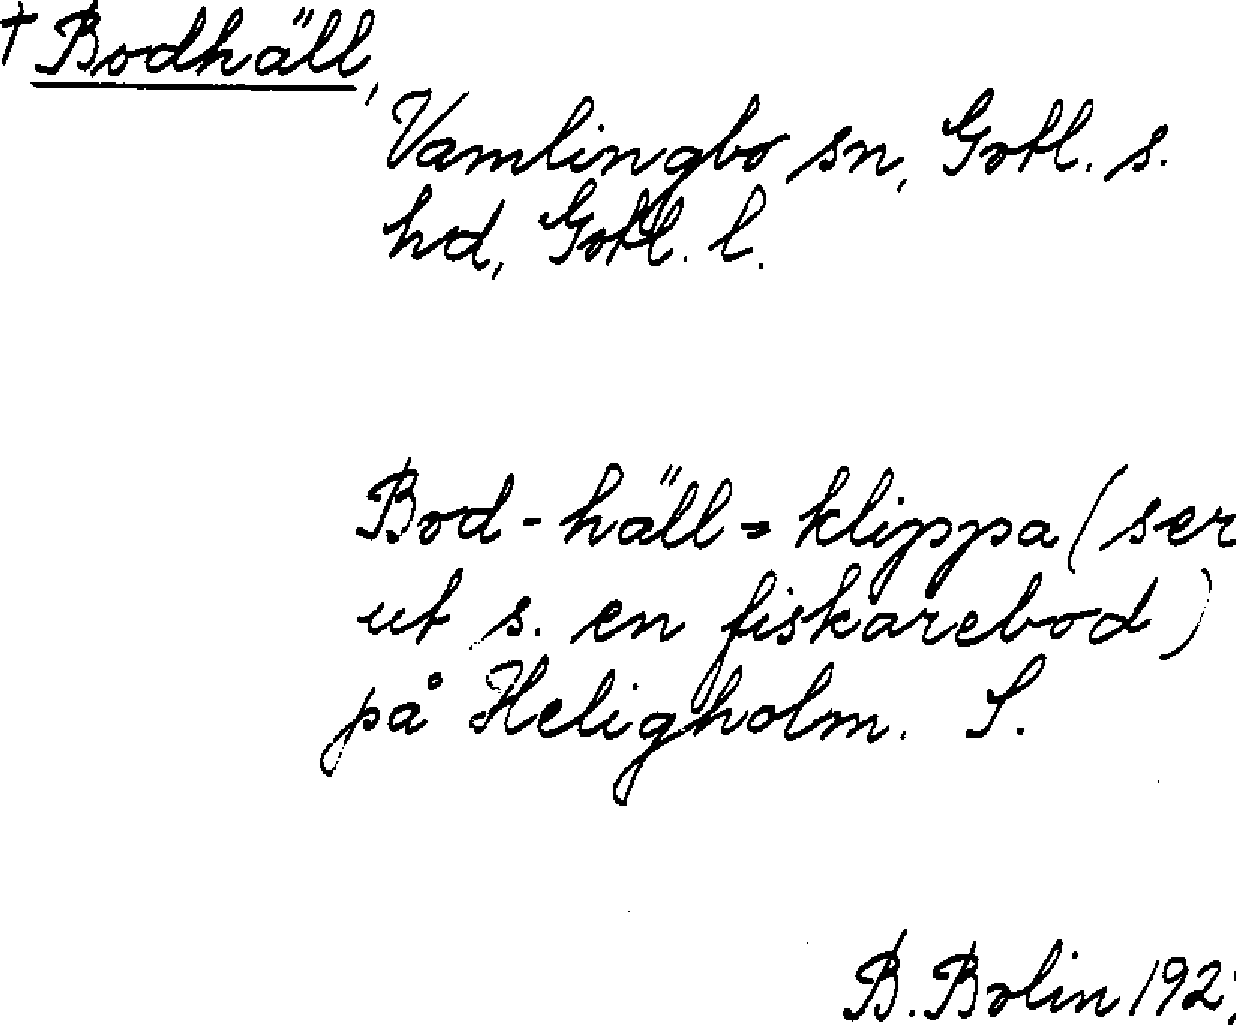 † Bodhäll,
Vamlingbo sn, Gotl. s.
hd, Gotl. l.
Bod-häll = klippa (ser
ut s. en fiskarebod)
på Heligholm. S.
B. Bolin 192